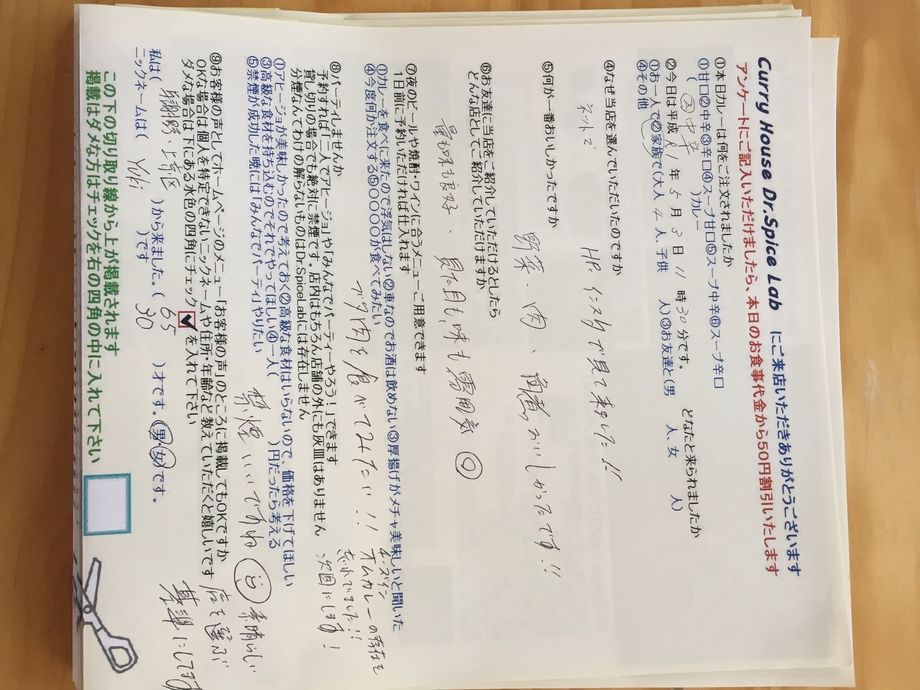 Curry House Dr.Spice Lab にご来店いただきありがとうございます
アンケートにご記入いただけましたら、本日のお食事代金から50円割引いたします
①本日カレーは何をご注文されましたか
①甘口②中辛③辛口④スープ甘口⑤スープ中辛⑥スープ辛口
( ②中辛 )カレー
②今日は平成 31 年 5 月 3 日 11 時 30 分です。 どなたと来られましたか
①お一人で②家族で(大人 4 人、子供 人)③お友達と(男 人、女 人)
④その他
④なぜ当店を選んでいただいたのですか
ネットで HP、インスタで見て来ました!!
⑤何が一番おいしかったですか
野菜、肉、 おいしかったです!!
⑥お友達に当店をご紹介していただけるとしたら
どんな店としてご紹介していただけますか
量も味も良好、見た目も味も雰囲気◎
⑦夜のビールや焼酎・ワインに合うメニューご用意できます
1日前に予約いただければ仕入れます
①カレーを食べに来たので浮気はしない②車なのでお酒は飲めない③厚揚げがメチャ美味しいと聞いた
④今度何か注文する⑤○○○○が食べてみたい
ブタ肉を食べてみたい!!
チーズイン
オムカレーの存在を
忘れていました!!
次回にします!
⑧パーティしませんか
予約すれば「二人でアヒージョ」や「みんなでパーティーやろう!」できます
貸し切りの場合でも絶対に禁煙です。店内はもちろん店舗の外にも灰皿はありません
分煙なんてわけの解らないものはDr.SpiceLabには存在しません
①アヒージョが美味しかったので考えておく②高級な食材はいらないので、価格を下げてほしい
③高級な食材を持ち込むのでそれでやってほしい④一人( )円だったら考える
⑤禁煙が成功した暁には「みんなでパーティ」やりたい
禁煙いいですね 素晴らしい
店を選ぶ
基準にしてます
⑨お客様の声としてホームページのメニュー「お客様の声」のところに掲載してもOKですか
OKな場合は個人を特定できないニックネームや住所・年齢など教えていただくと嬉しいです
ダメな場合は下にある水色の四角にチェック☑を入れて下さい
私は( )から来ました。( 65 30 )才です。(男・女)です。
ニックネームは( )です
この下の切り取り線から上が掲載されます
掲載はダメな方はチェックを右の四角の中に入れて下さい